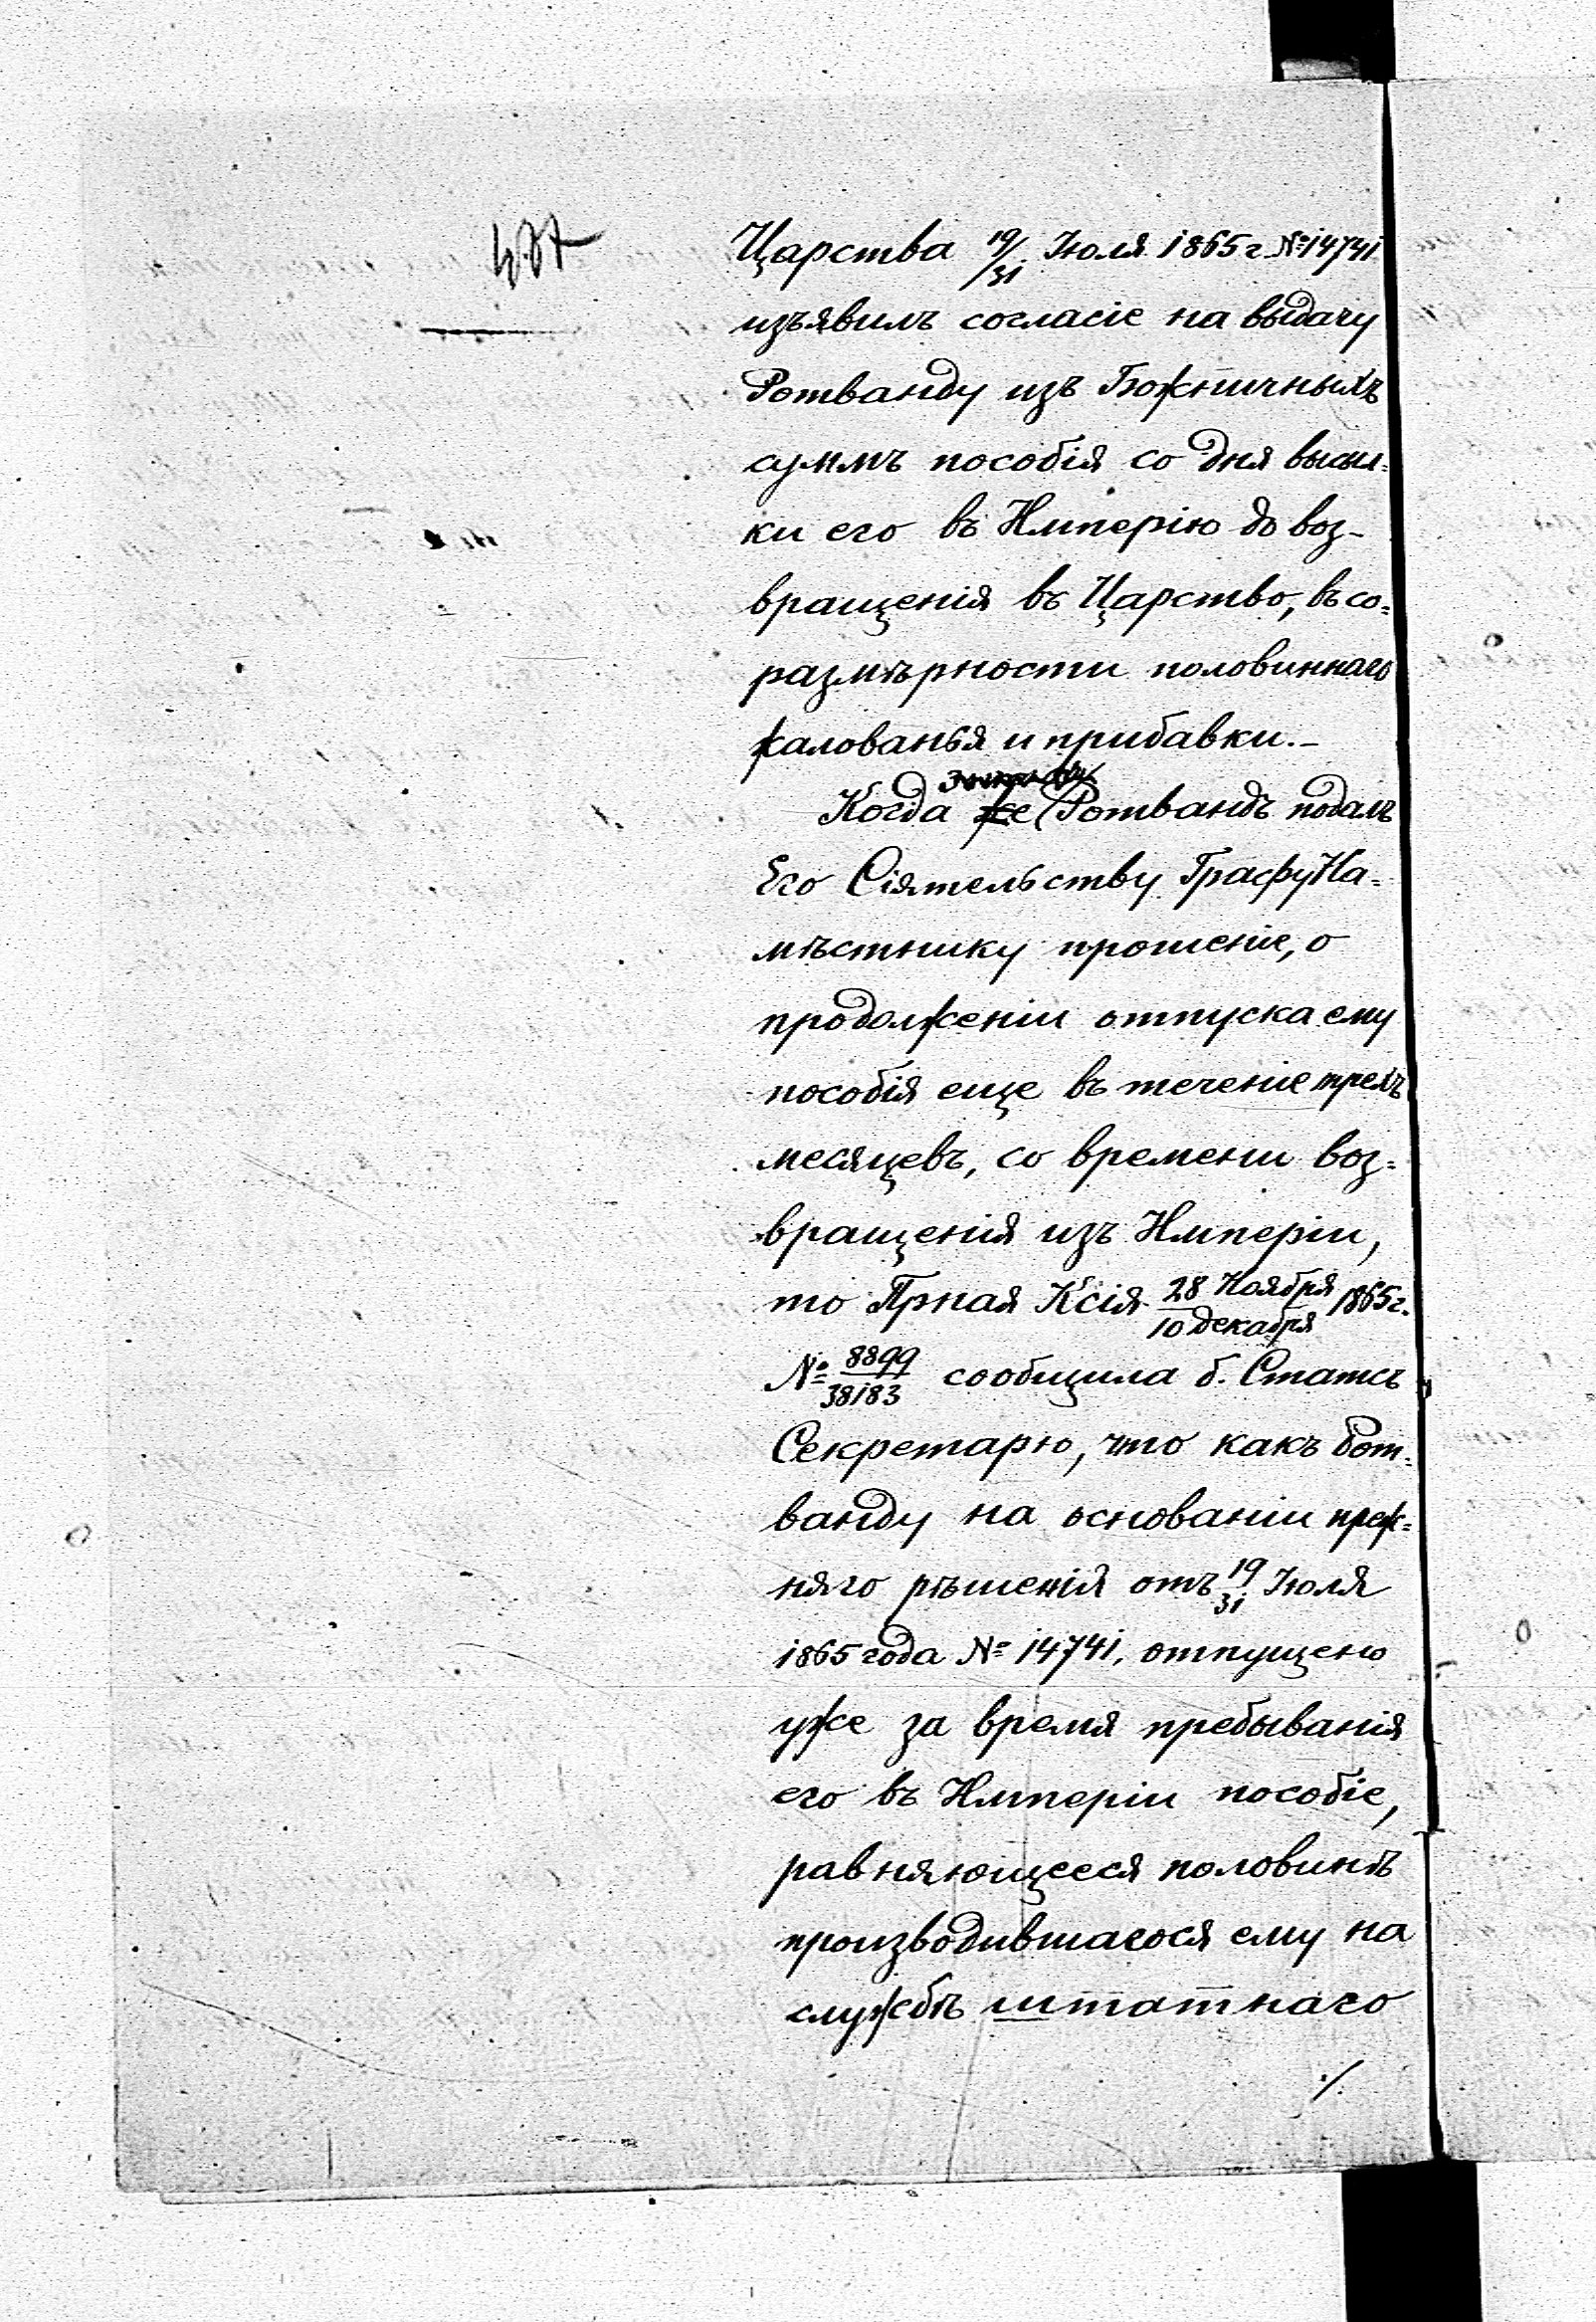 Царства 19/31 Іюля 1865 г. № 14741
изъявилъ согласіе на выдачу
Ротванду изъ Божничныхъ
суммъ пособія со дня высыл=
ки его въ Имперію до воз-
вращенія въ Царство, въ со=
размѣрности половиннаго
жалованья и прибавки.-
Когда же Ротвандъ подалъ
Его Сіятельству Графу На=
мѣстнику прошеніе, о
продолженіи отпуска ему
пособія еще въ теченіе трехъ
месяцевъ, со времени воз=
вращенія изъ Имперіи,
то Прная Ксія 28 Ноября/10 Декабря 1865 г.
№ 8899/38183 сообщила б. Статсъ
Секретарю, что какъ Рот=
ванду на основаніи преж=
няго рѣшенія отъ 19/31 Іюля
1865 года № 14741, отпущено
уже за время пребыванія
его въ Имперіи пособіе,
равняющееся половинѣ
производившагося ему на
службѣ штатнаго
./.